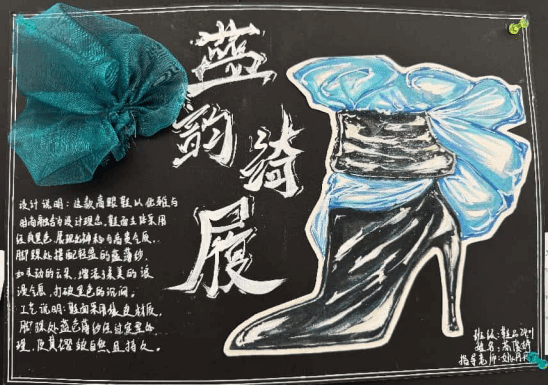 蓝韵绮履
设计说明：这款高跟鞋以优雅与
时尚融合为设计理念，鞋面主体采用
经典黑色，展现出神秘与高贵气质，
脚踝处搭配轻盈的蓝薄纱，
如灵动的云朵，增添柔美的浪
漫气息，打破黑色的沉闷。
工艺说明：鞋面采用
脚踝处蓝色薄纱经过
理，使其褶皱自然且持久。
班级：鞋品
姓名：
指导老师：